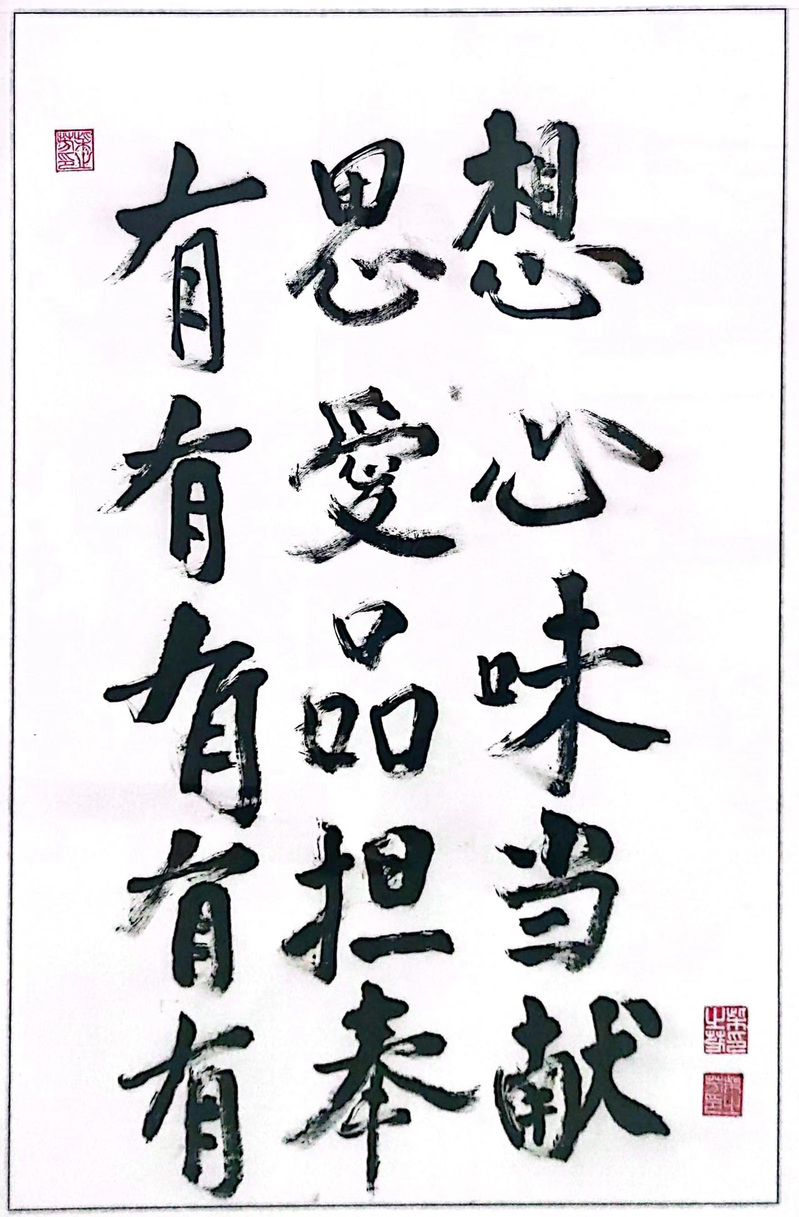 有思想
有愛心
有品味
有担当
有奉献